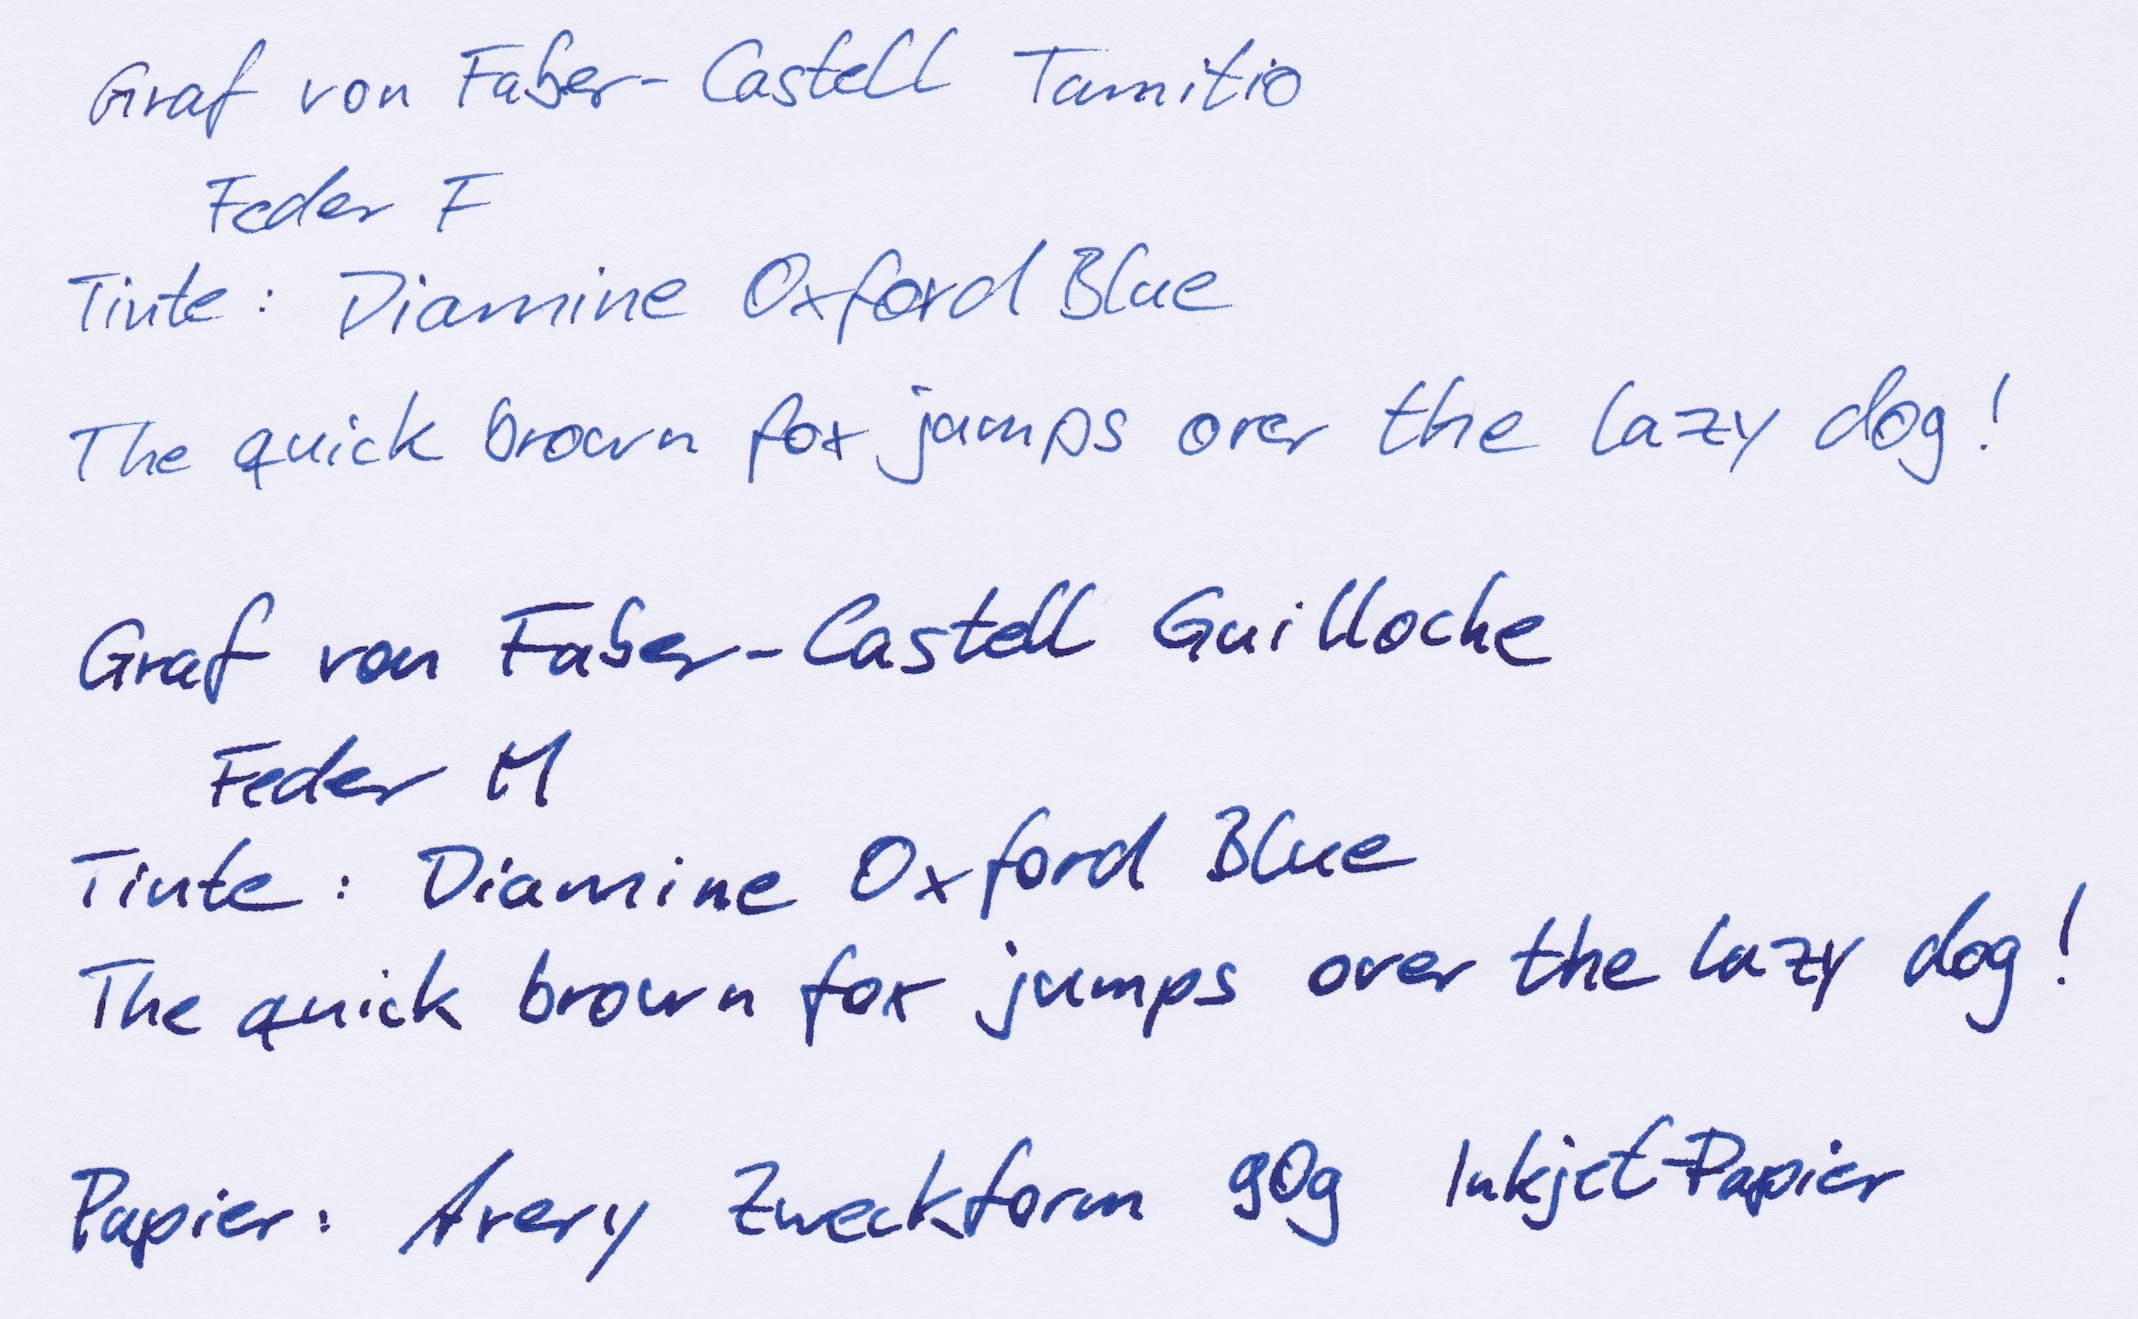 Graf von Faber-Castell Tamitio
Feder F
Tinte: Diamine Oxford Blue
The quick brown fox jumps over the lazy dog!
Graf von Faber-Castell Guilloche
Feder M
Tinte: Diamine Oxford Blue
The quick brown fox jumps over the lazy dog!
Papier: Avery Zweckform 90g Inkjet-Papier